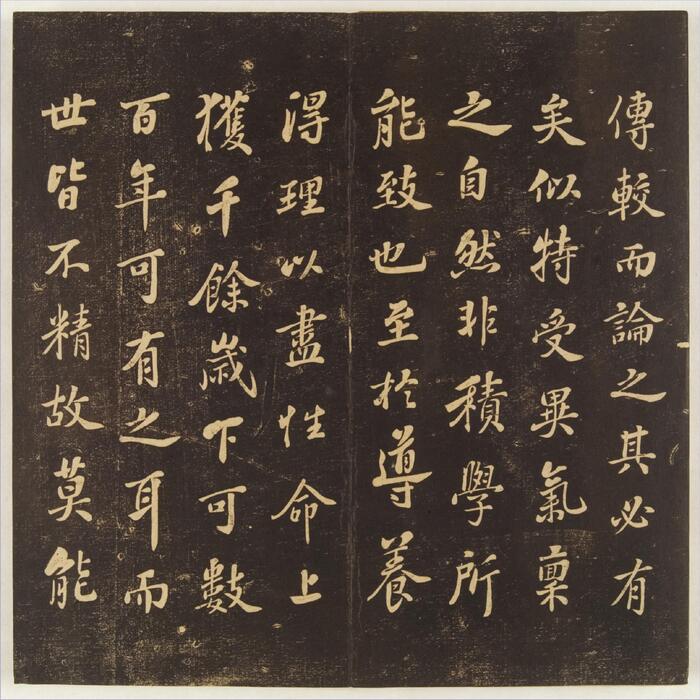 傳較而論之其必有
矣似特受異氣稟
之自然非積學所
能致也至於導養
得理以盡性命上
獲千餘歲下可數
百年可有之耳而
世皆不精故莫能